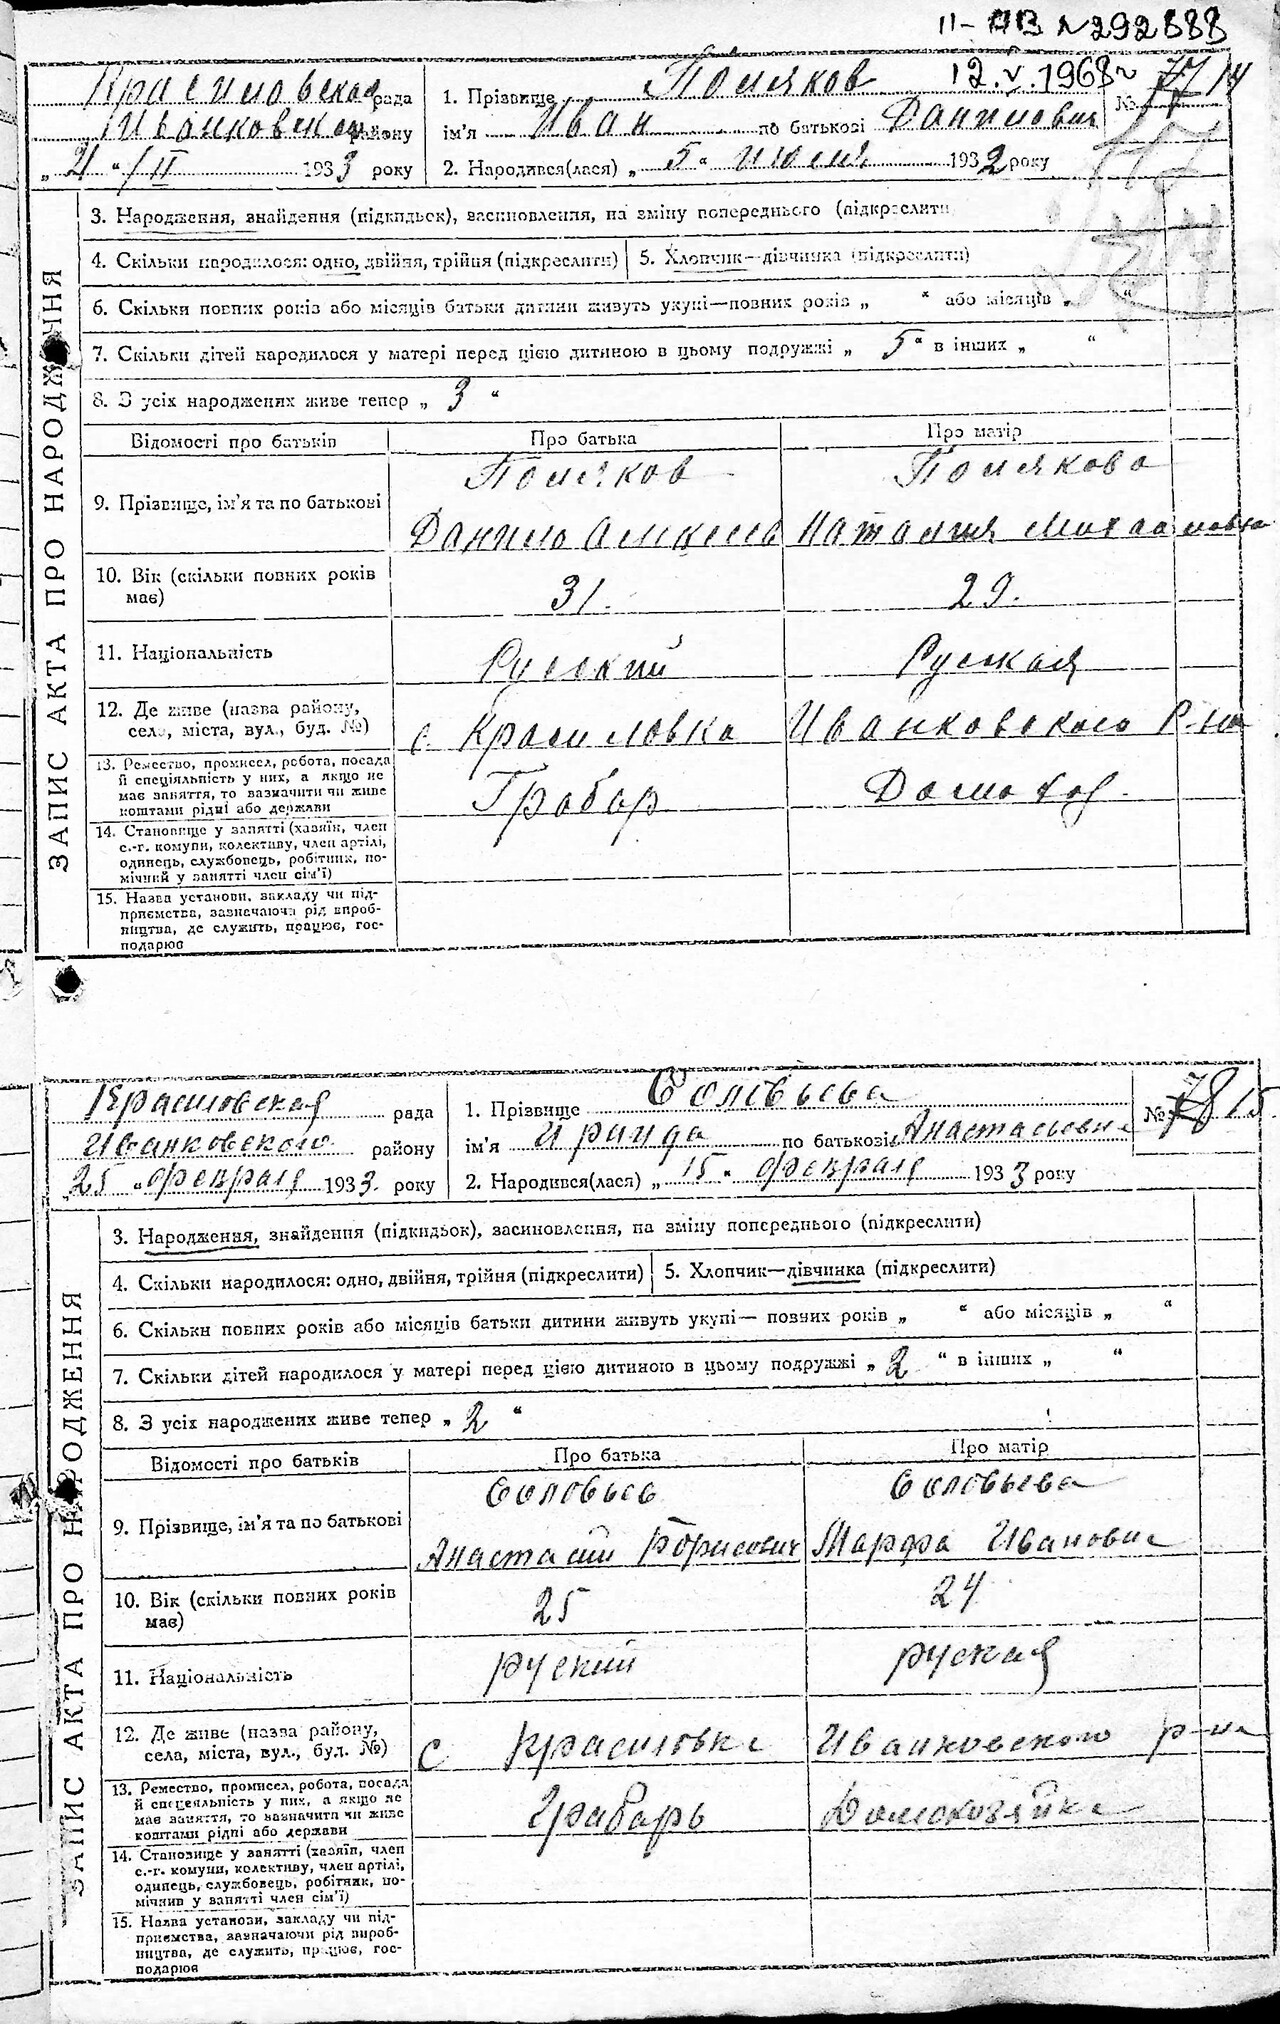 II-ПВ №292888
12.V.1968г
Красиловская рада
Иванковского району
„21“/II 1933 року
1. Прізвище Поляков
№ 77 14
ім'я Иван по батькові Данилович
2. Народився(лася) „5“ июля 1932 року
ЗАПИС АКТА ПРО НАРОДЖЕННЯ
3. Народження, знайдення (підкидьок), засиновлення, на зміну попереднього (підкреслити
4. Скільки народилося: одно, двійня, трійня (підкреслити) 5. Хлопчик—дівчинка (підкреслити)
6. Скільки повних років або місяців батьки дитини живуть укупі—повних років „ “ або місяців „ “
7. Скільки дітей народилося у матері перед цією дитиною в цьому подружжі „5“ в інших „ “
8. З усіх народжених живе тепер „3“
Відомості про батьків Про батька Про матір
Поляков Полякова
9. Прізвище, ім'я та по батькові
Данило Наталия
10. Вік (скільки повних років має) 31. 29.
11. Національність Руський Руская
12. Де живе (назва району, села, міста, вул., буд. №) с. Красиловка Иванковского Р-на
13. Ремество, промисел, робота, посада й спеціяльність у них, а якщо не має заняття, то вазначити чи живе коштами рідні або держави Грабар Домохоз.
14. Становище у занятті (хазяїн, член с.-г. комуни, колективу, член артілі, одинець, службовець, робітник, помічний у занятті член сім'ї)
15. Назва установи, закладу чи підприємства, зазначаючи рід виробництва, де служить, працює, господарює
Красиловская рада
Иванковского району
25 „Февраля 1933 року
1. Прізвище Соловьева
№ 78 15
ім'я Ираида по батькові Анастасьевна
2. Народився(лася) „15“ Февраля 1933 року
ЗАПИС АКТА ПРО НАРОДЖЕННЯ
3. Народження, знайдення (підкидьок), засиновлення, на зміну попереднього (підкреслити)
4. Скільки народилося: одно, двійня, трійня (підкреслити) 5. Хлопчик—дівчинка (підкреслити)
6. Скільки повних років або місяців батьки дитини живуть укупі— повних років „ “ або місяців „ “
7. Скільки дітей народилося у матері перед цією дитиною в цьому подружжі „2“ в інших „ “
8. З усіх народжених живе тепер „2“
Відомості про батьків Про батька Про матір
Соловьев Соловьева
9. Прізвище, ім'я та по батькові
Анастасий Борисович Марфа Ивановна
10. Вік (скільки повних років має) 25 24
11. Національність руский руская
12. Де живе (назва району, села, міста, вул., буд. №) с Красиловка Иванковского р-на
13. Ремество, промисел, робота, посада й спеціяльність у них, а якщо не має заняття, то вазначити чи живе коштами рідні або держави Грабарь Домохозяйка
14. Становище у занятті (хазяїн, член с.-г. комуни, колективу, член артілі, одинець, службовець, робітник, помічник у занятті член сім'ї)
15. Назва установи, закладу чи підприємства, зазначаючи рід виробництва, де служить, працює, господарює